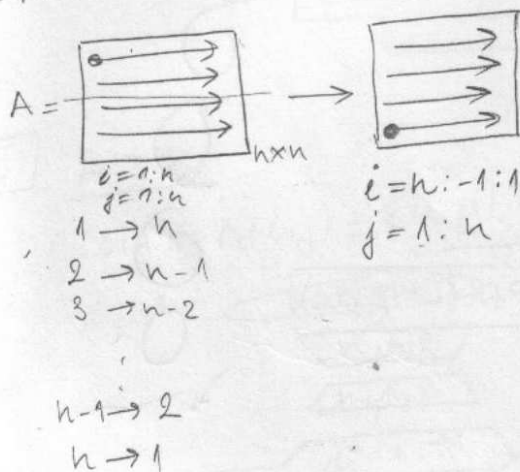 A =
n×n
i = 1:n
j = 1:n
1 → n
2 → n-1
3 → n-2
n-1 → 2
n → 1
i = n:-1:1
j = 1:n